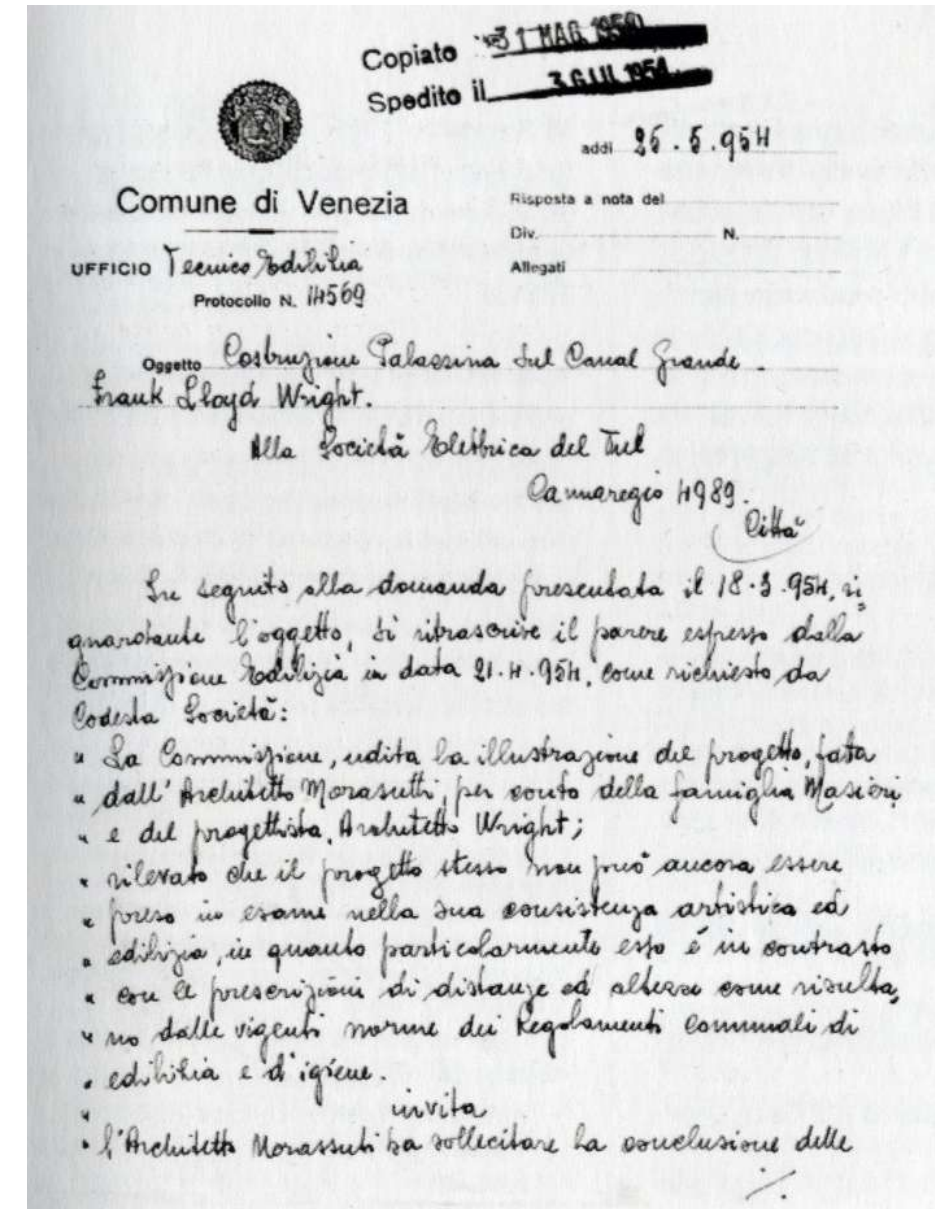 Copiato 31 MAG. 1954
Spedito il 3 GIU. 1954
addì 26.5.954
Comune di Venezia
Risposta a nota del
Div. N.
UFFICIO Tecnico Edilizia
Allegati
Protocollo N. 14569
Oggetto Costruzione Palazzina sul Canal Grande -
Frank Lloyd Wright.
Alla Società Elettrica del
Cannaregio 4989.
Città
In seguito alla domanda presentata il 18.3.954, ri=
guardante l'oggetto, si ritrascrive il parere espresso dalla
Commissione Edilizia in data 21.4.954, come richiesto da
Codesta Società:
" La Commissione, udita la illustrazione del progetto, fata
" dall'Architetto Morasutti, per conto della famiglia Masieri
" e del progettista, Architetto Wright;
" rilevato che il progetto stesso non può ancora essere
" preso in esame nella sua consistenza artistica ed
" edilizia, in quanto particolarmente esso è in contrasto
" con le prescrizioni di distanze ed altezze come risulta=
" no dalle vigenti norme dei Regolamenti Comunali di
" edilizia e d'igiene.
" invita
" l'Architetto Morassuti a sollecitare la conclusione delle
./.